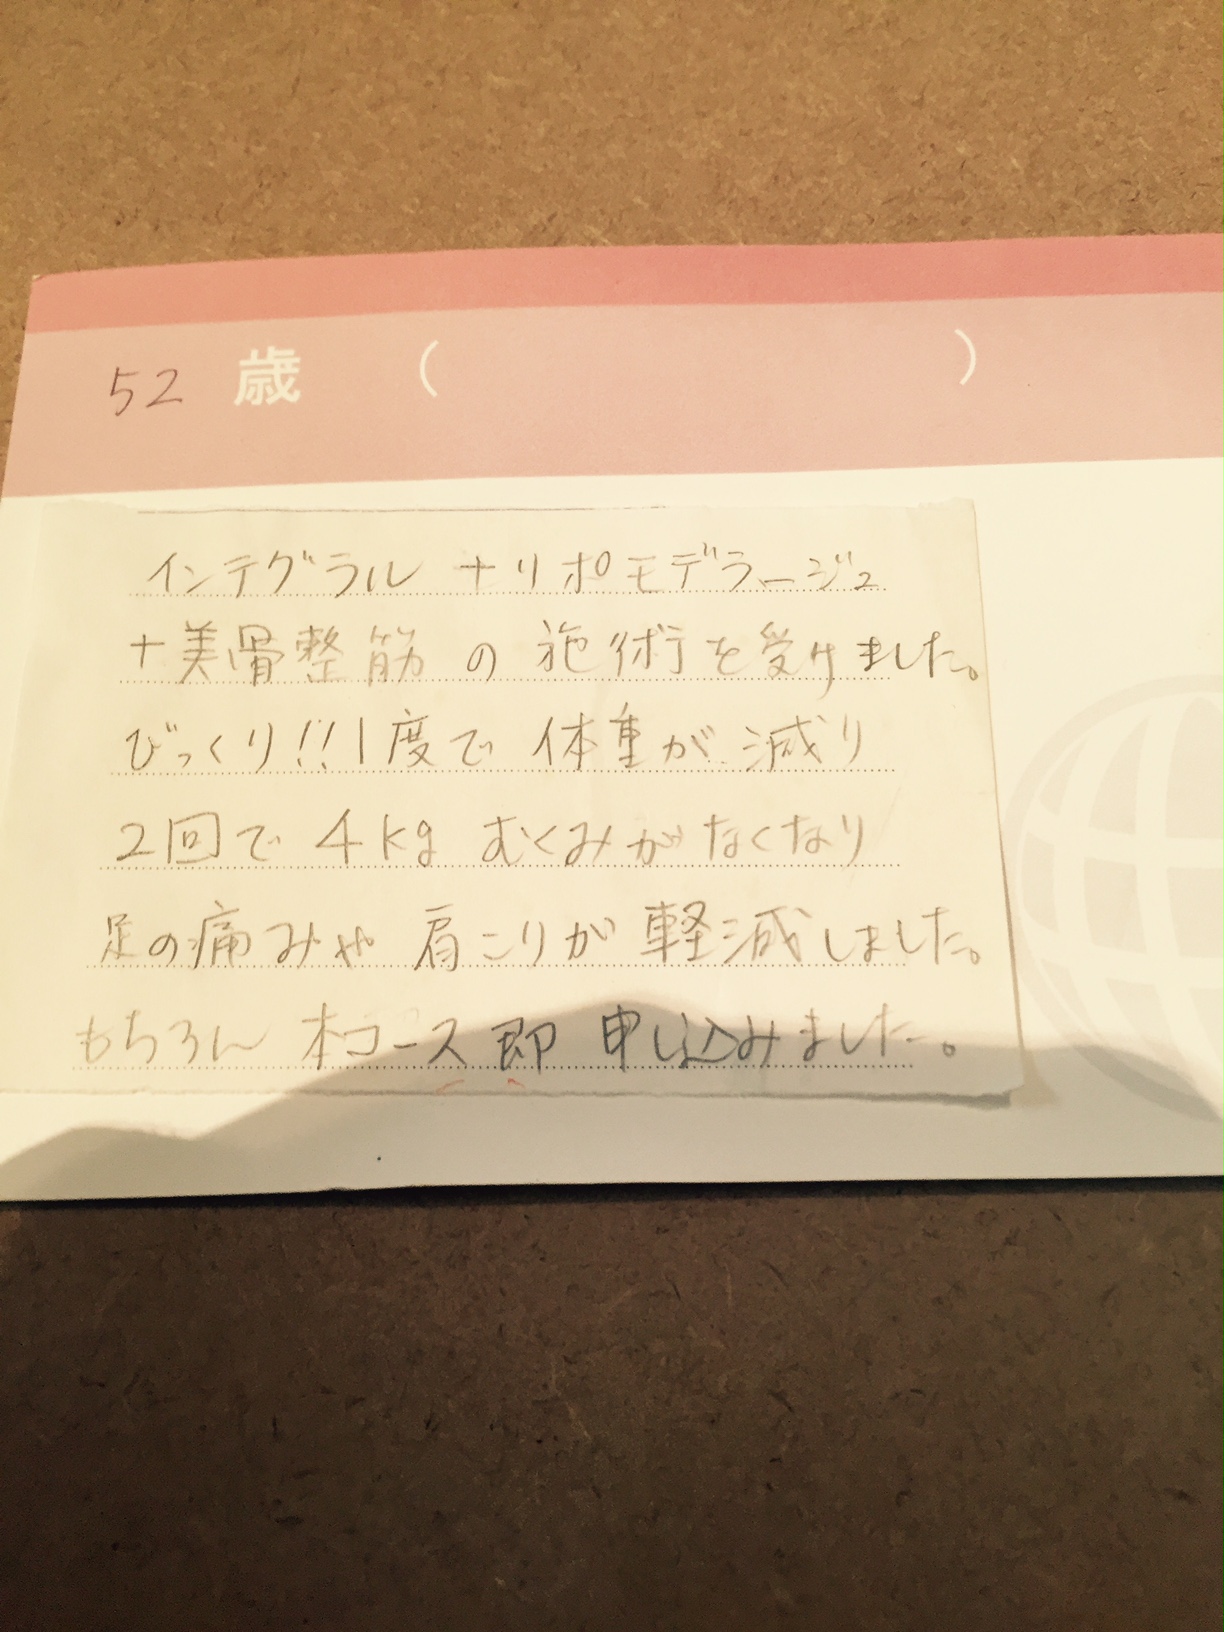 52 歳 ( )
インテグラル + リポモデラージュ
+ 美骨整筋 の 施術を受けました。
びっくり!! 1度で 体重が 減り
2回で 4kg むくみが なくなり
足の痛みや 肩こりが 軽減しました。
もちろん 本コース 即 申し込みました。